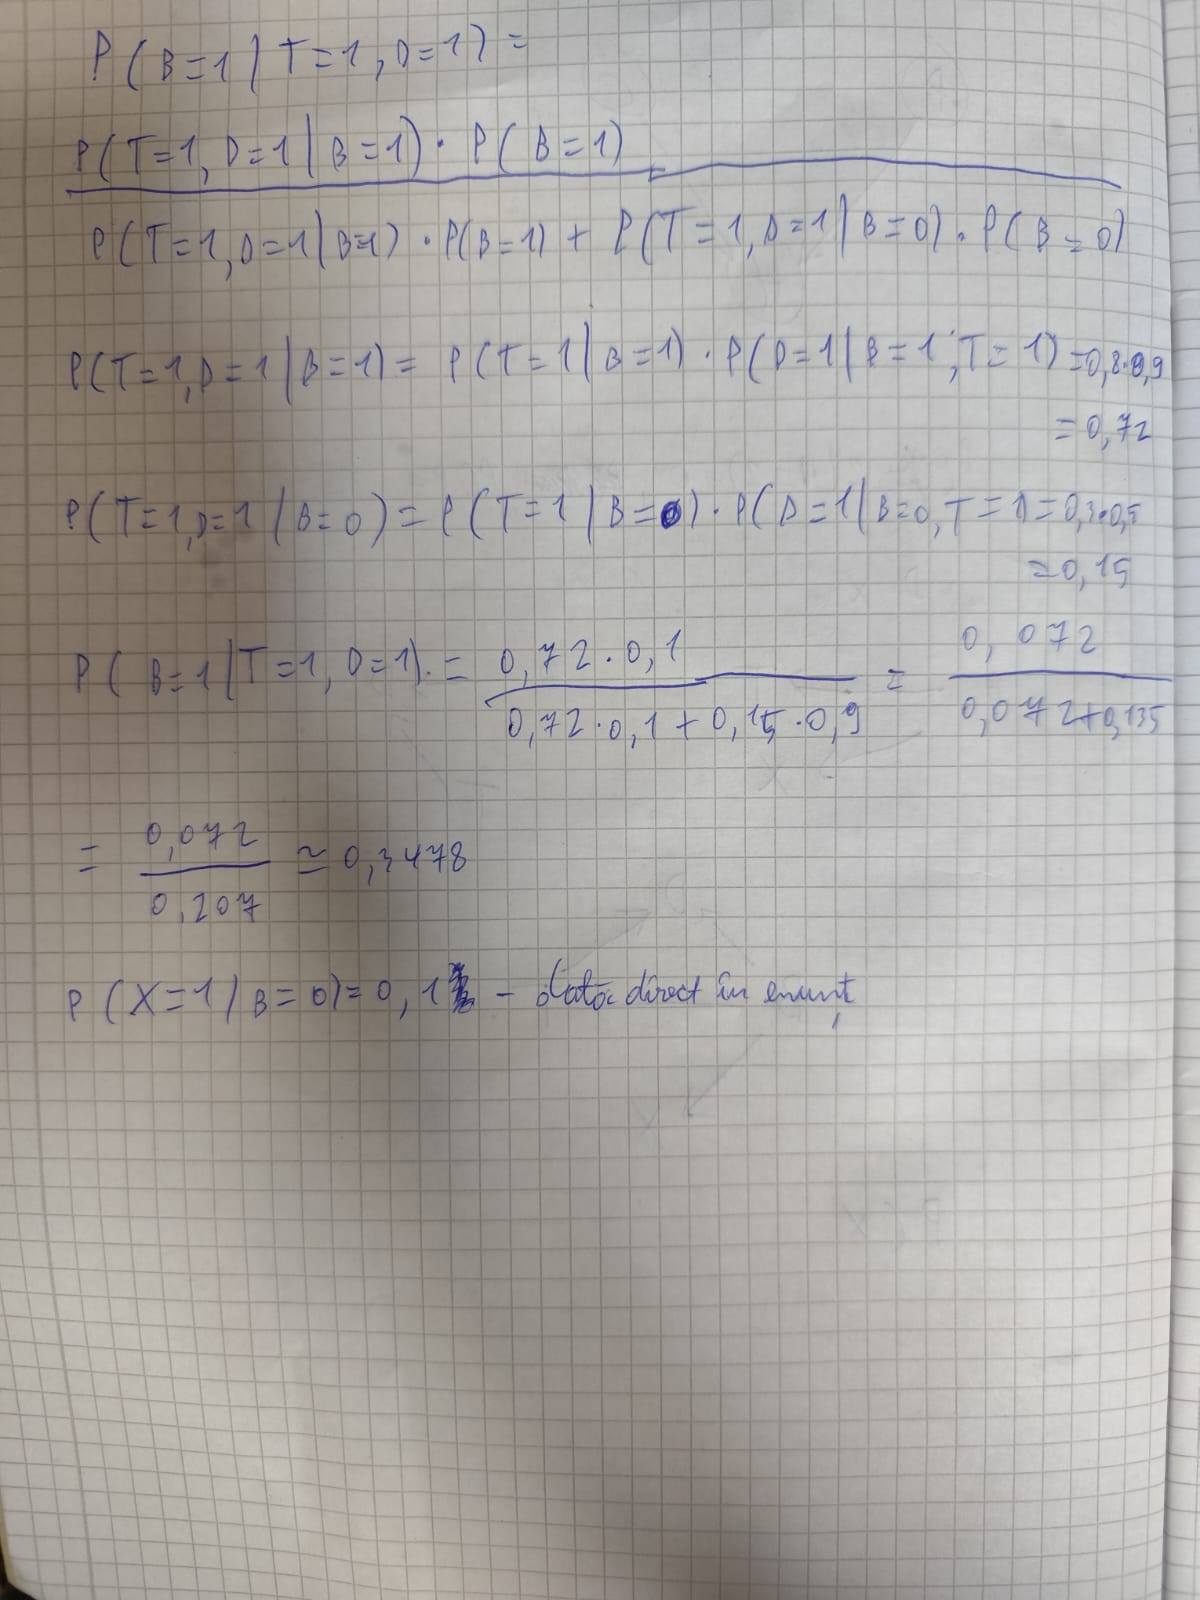 P(B=1|T=1,D=1)=
P(T=1,D=1|B=1)·P(B=1)
P(T=1,D=1|B=1)·P(B=1)+P(T=1,D=1|B=0)·P(B=0)
P(T=1,D=1|B=1)=P(T=1|B=1)·P(D=1|B=1,T=1)=0,8·0,9
=0,72
P(T=1,D=1|B=0)=P(T=1|B=0)·P(D=1|B=0,T=1)=0,3·0,5
=0,15
P(B=1|T=1,D=1)=0,72·0,1 / 0,72·0,1+0,15·0,9 = 0,072 / 0,072+0,135
= 0,072 / 0,207 ≃ 0,3478
P(X=1|B=0)=0,1 - dată direct în enunț